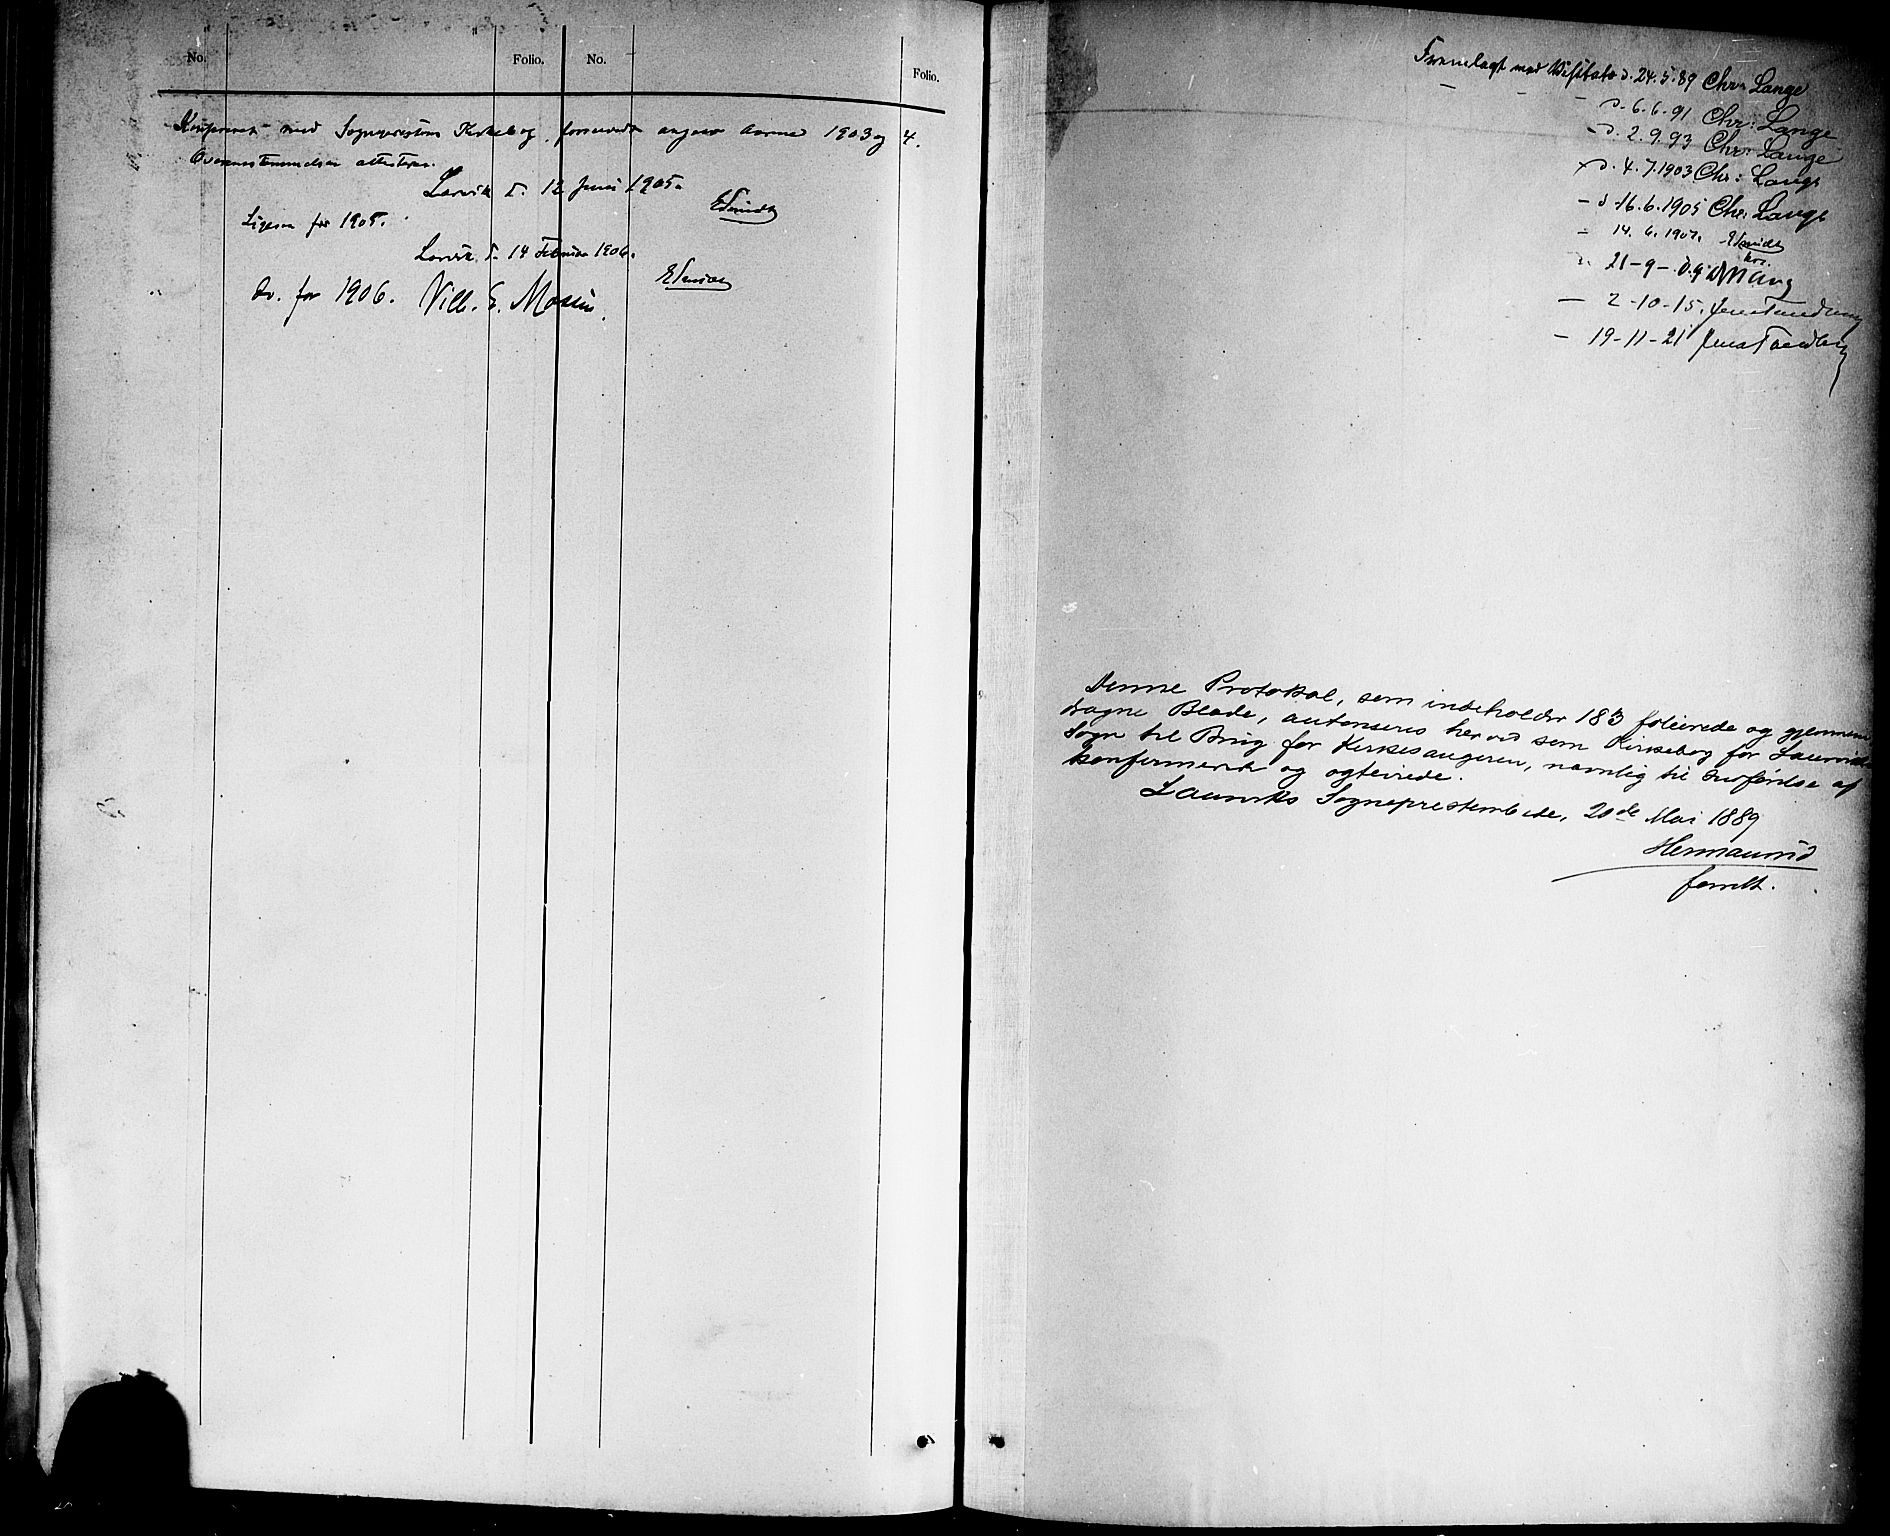 No. Folio. No. Folio.
Konfereret med Sogneprestens Kirkebog forsaavidt angaar Aarene 1903 og 4.
Overensstemmelsen attesteres.
Larvik d. 12 Juni 1905.
ESmidt
Ligesaa for 1905.
Larvik d. 14 Februar 1906.
ESmidt
Do. for 1906. Vilh. E.
Fremlagt ved Visitats d. 24.5.89 Chr: Lange
— - - d. 6.6.91 Chr: Lange
- d. 2.9.93 Chr: Lange
d. 4.7.1903 Chr: Lange
- d 16.6.1905 Chr: Lange
- 14.6.1907. ESmidt
21-9-
— 2-10-15. Jens Tandberg
— 19-11-21 Jens Tandberg
Denne Protokol, som indeholder 183 folierede og gjennem
dragne Blade, autoriseres herved som Kirkebog for Laurviks
Sogn til Brug for Kirkesangeren, nemlig til Indførelse af
konfirmerede og egteviede.
Laurviks Sogneprestembede, 20de Mai 1889